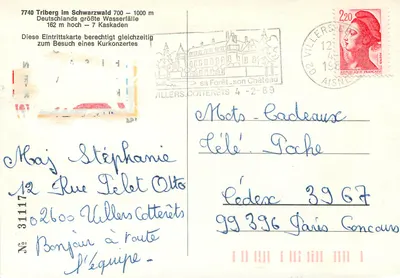 7740 Triberg im Schwarzwald 700 – 1000 m
Deutschlands größte Wasserfälle
162 m hoch — 7 Kaskaden
Diese Eintrittskarte berechtigt gleichzeitig
zum Besuch eines Kurkonzertes
Maj Stéphanie
12 Rue Pelet Otto
02600 Villers Cotterêts
Bonjour à toute
l'équipe -
№ 31117
sa Forêt.. son Château
VILLERS COTTERETS 4-2-89
02 VILLERS
AISNE
2,20
Mots-Cadeaux
Télé Poche
Cédex 3967
99396 Paris Concours